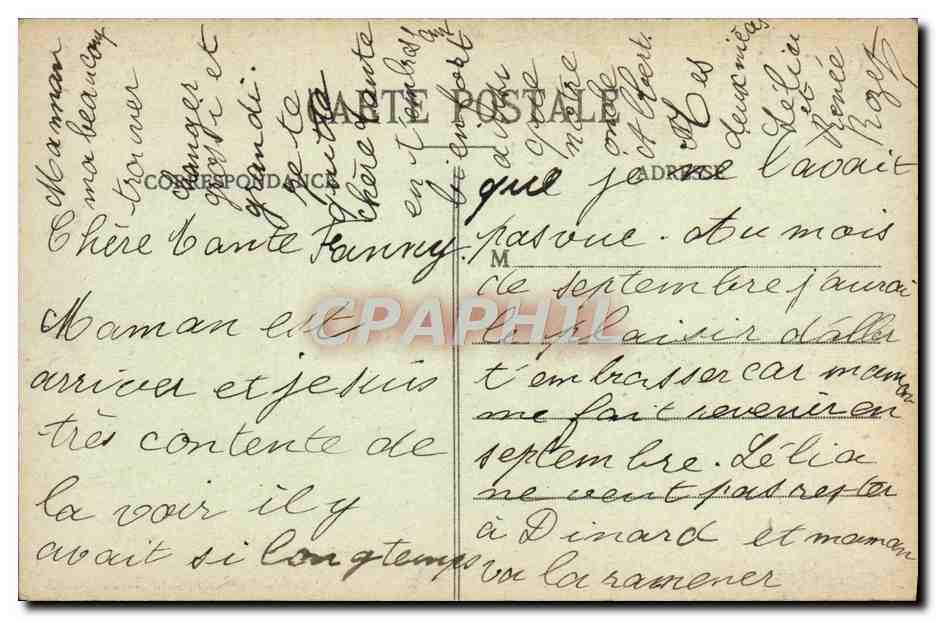 CARTE POSTALE
CORRESPONDANCE
ADRESSE
M
CPAPHIL
Chère Tante Fanny.
Maman est
arriver et je suis
très contente de
la voir il y
avait si longtemps
que je ne l'avait
pas vue. Au mois
de septembre j'aurai
le plaisir d'aller
t'embrasser car maman
me fait revenir en
septembre. Lélia
ne veut pas rester
à Dinard et maman
va la ramener
Maman
ma beaucoup
trouver
changer
grossi et
grandi.
Je te
quitte
chère tante
en t'embrassant
bien fort
ainsi
que
notre
oncle
Albert.
Tes
deux nièces
Lélia
et
Renée
Rozet